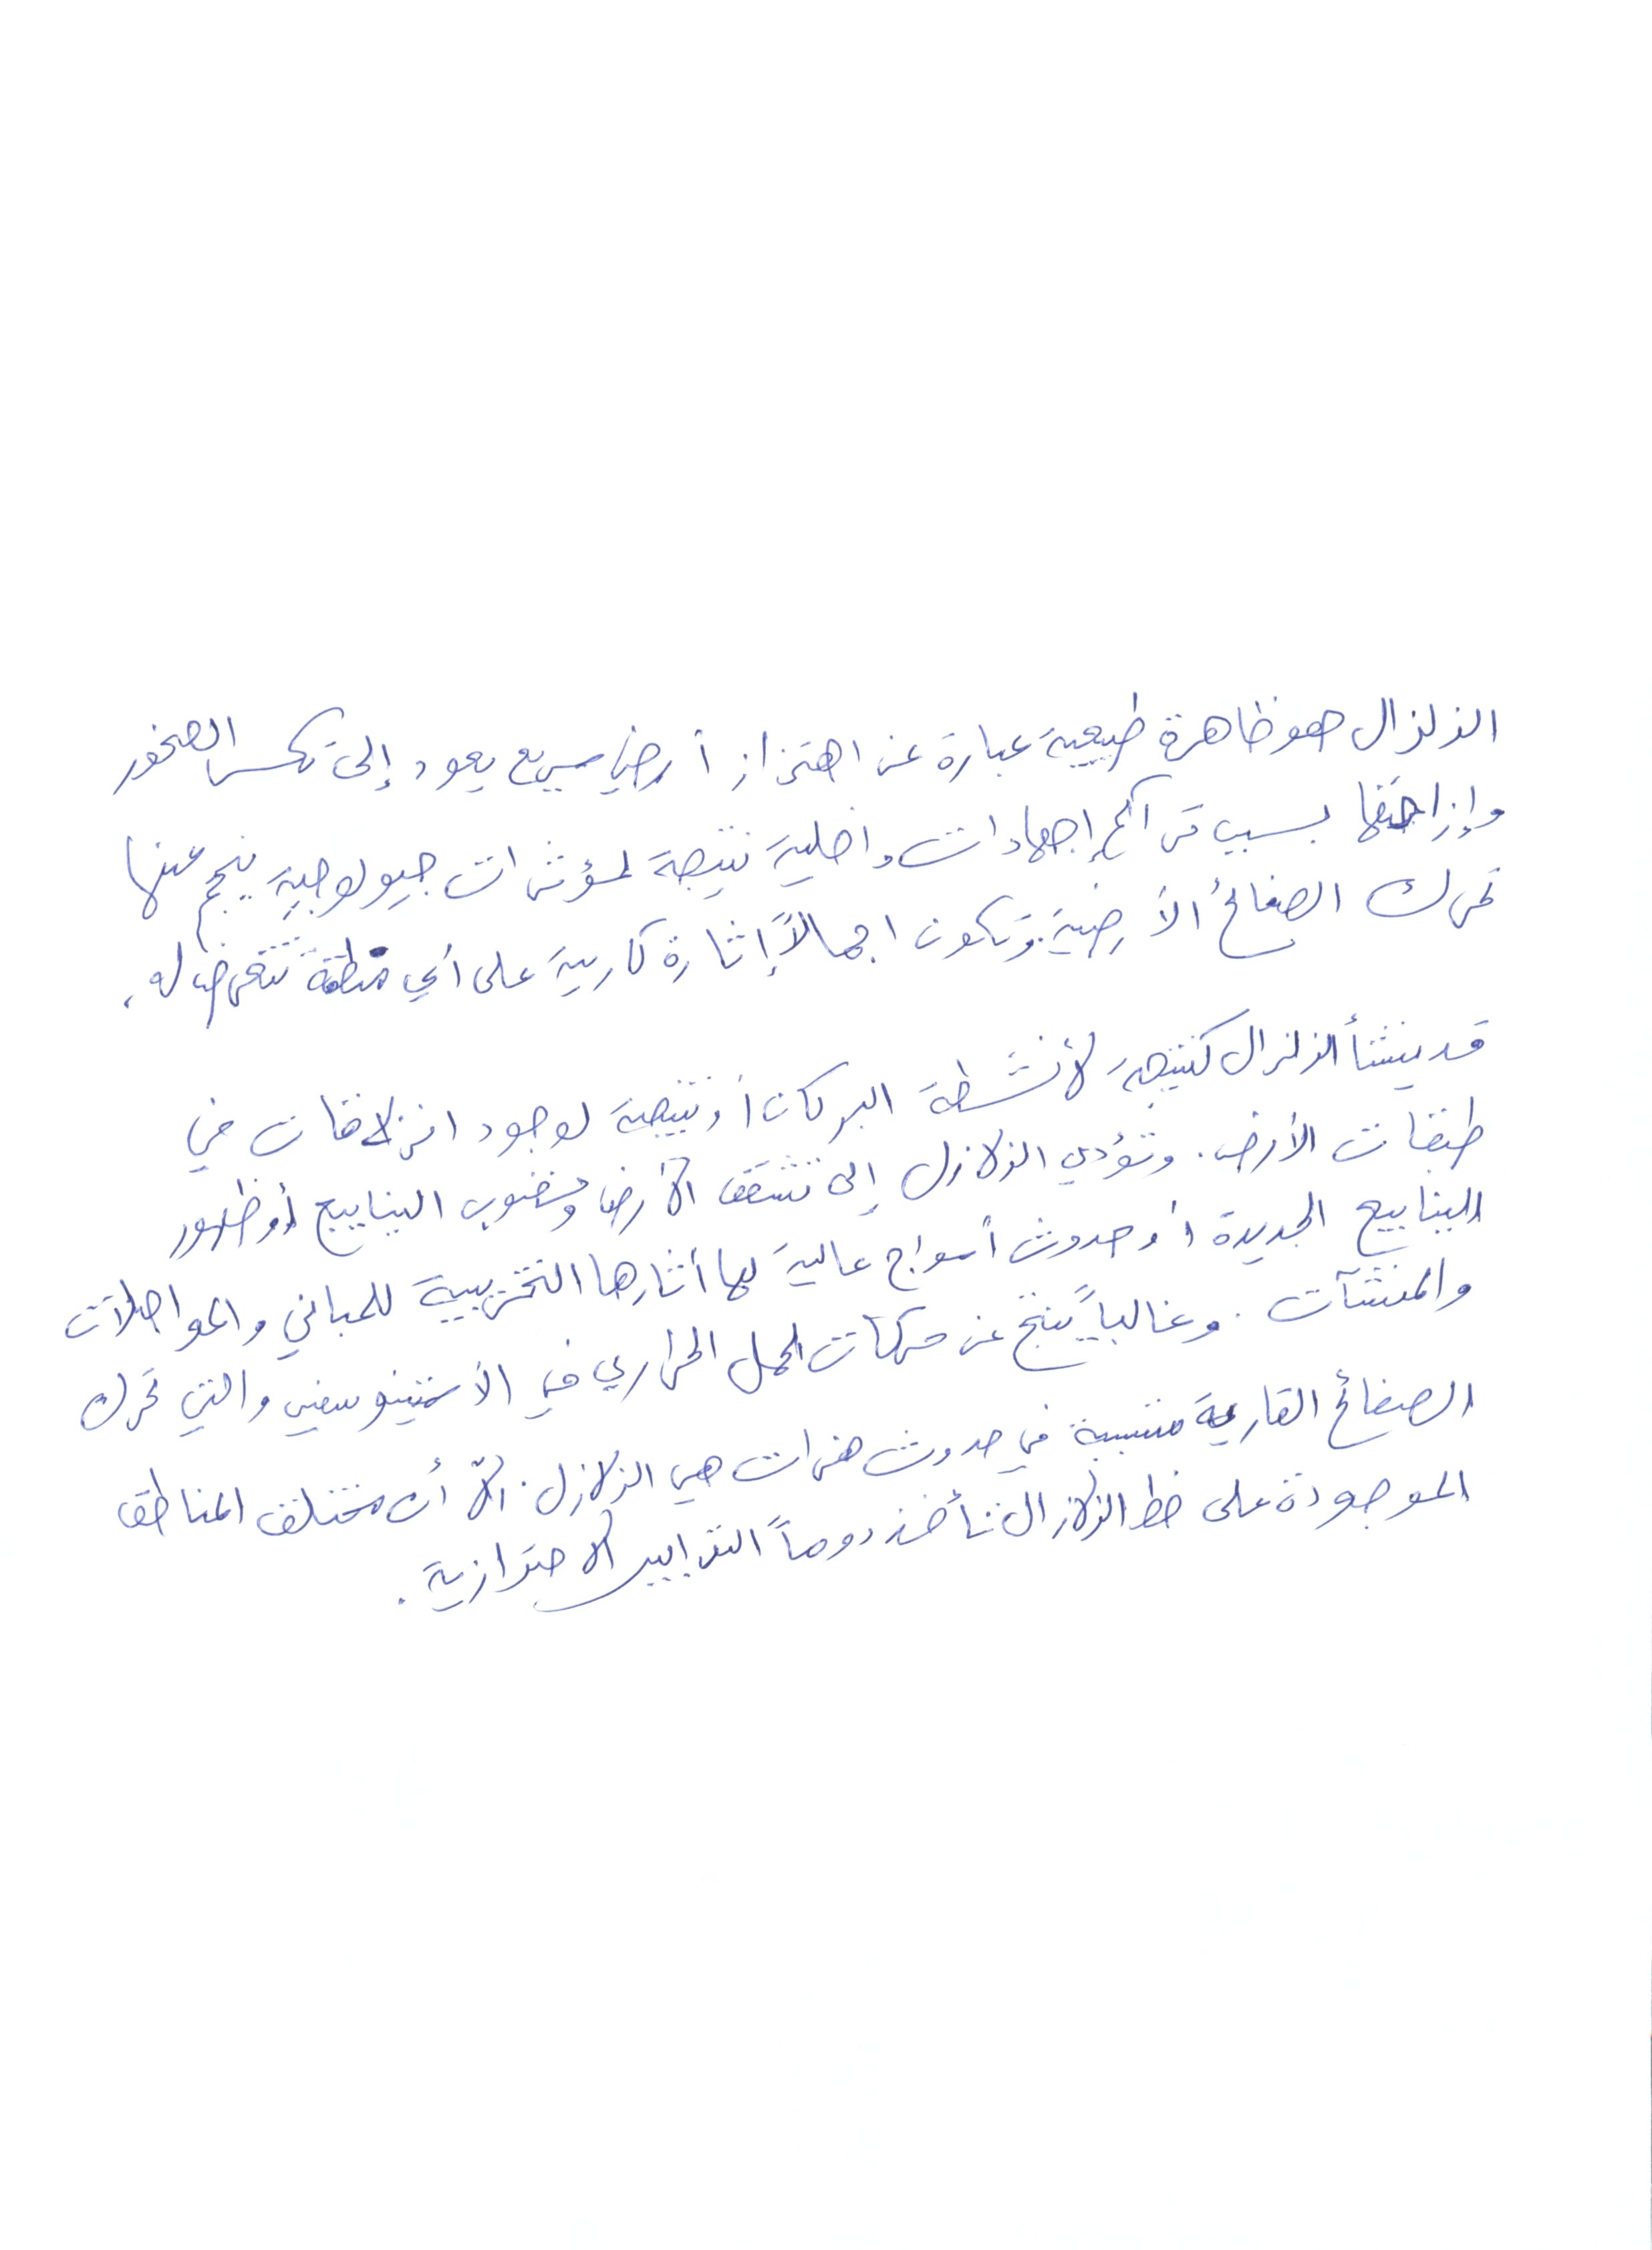 الزلزال هو ظاهرة طبيعية عبارة عن اهتزاز أرضي سريع يعود إلى تكسر الصخور
وإزاحتها بسبب تراكم إجهادات داخلية نتيجة لمؤثرات جيولوجية ينجم عنها
تحرك الصفائح الأرضية. وتكون اجمالاً إثارة كارثية على أي منطقة تتعرض له.
قد ينشأ الزلزال كنتيجة لأنشطة البركان أو نتيجة لوجود انزلاقات في
طبقات الأرض. وتؤدي الزلازل إلى تشقق الأرض ونضوب الينابيع أو ظهور
الينابيع الجديدة أو حدوث أمواج عالية لها أثارها التخريبية للمباني والمواصلات
والمنشآت. وغالباً ينتج عن حركات الحمل الحراري في الأستينوسفير والتي تحرك
الصفائح القارية متسببة في حدوث هزات هي الزلازل. الاّ أن مختلف المناطق
الموجودة على خط الزلازال تأخذ دوماً التدابير الاحترازية.